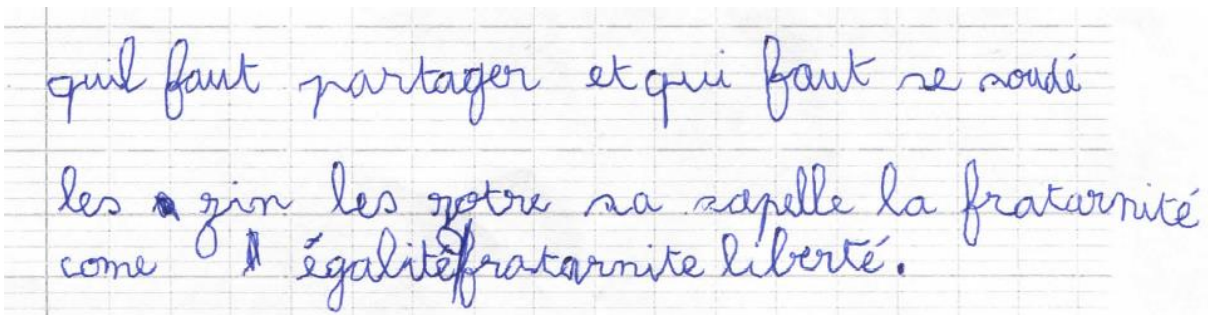 quil faut partager et qui faut se soudé
les zin les zotre sa sapelle la fratarnité
come égalité fratarnite liberté.